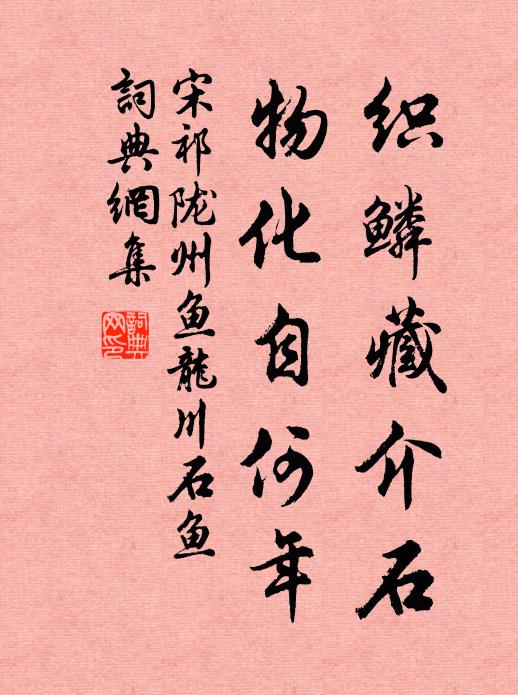 织鳞藏介石
物化自何年
宋祁陇州鱼龍川石鱼
詞典網集
詞典
网印